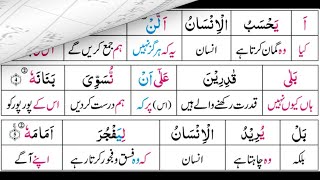 اَ يَحْسَبُ الْاِنْسَانُ اَلَّنْ
کیا وہ گمان کرتا ہے انسان یہ کہ ہرگز نہیں ہم جمع کریں گے
بَلٰى قٰدِرِيْنَ عَلٰٓى اَنْ نُّسَوِّىَ بَنَانَهٗ ﴿۴﴾
ہاں کیوں نہیں قدرت رکھنے والے ہیں (اس) پر کہ ہم درست کردیں اس کے پور پور کو
بَلْ يُرِيْدُ الْاِنْسَانُ لِيَفْجُرَ اَمَامَهٗ ﴿۵﴾
بلکہ وہ چاہتا ہے انسان کہ وہ فسق و فجور کرتا رہے اپنے آگے